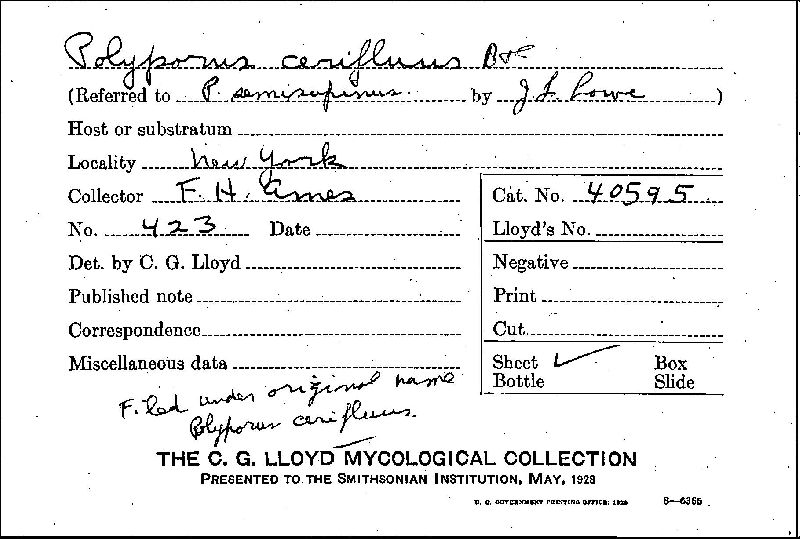 Polyporus cerifluus B+C
(Referred to P. semisupinus by J L Lowe )
Host or substratum
Locality New York
Collector F. H. Ames
Cat. No. 40595
No. 423 Date
Lloyd's No.
Det. by C. G. Lloyd
Negative
Published note
Print
Correspondence
Cut
Miscellaneous data
Sheet ✓ Box
Bottle Slide
Filed under original name
Polyporus cerifluus.
THE C. G. LLOYD MYCOLOGICAL COLLECTION
PRESENTED TO THE SMITHSONIAN INSTITUTION, MAY, 1928
U. S. GOVERNMENT PRINTING OFFICE: 1928 8—6365